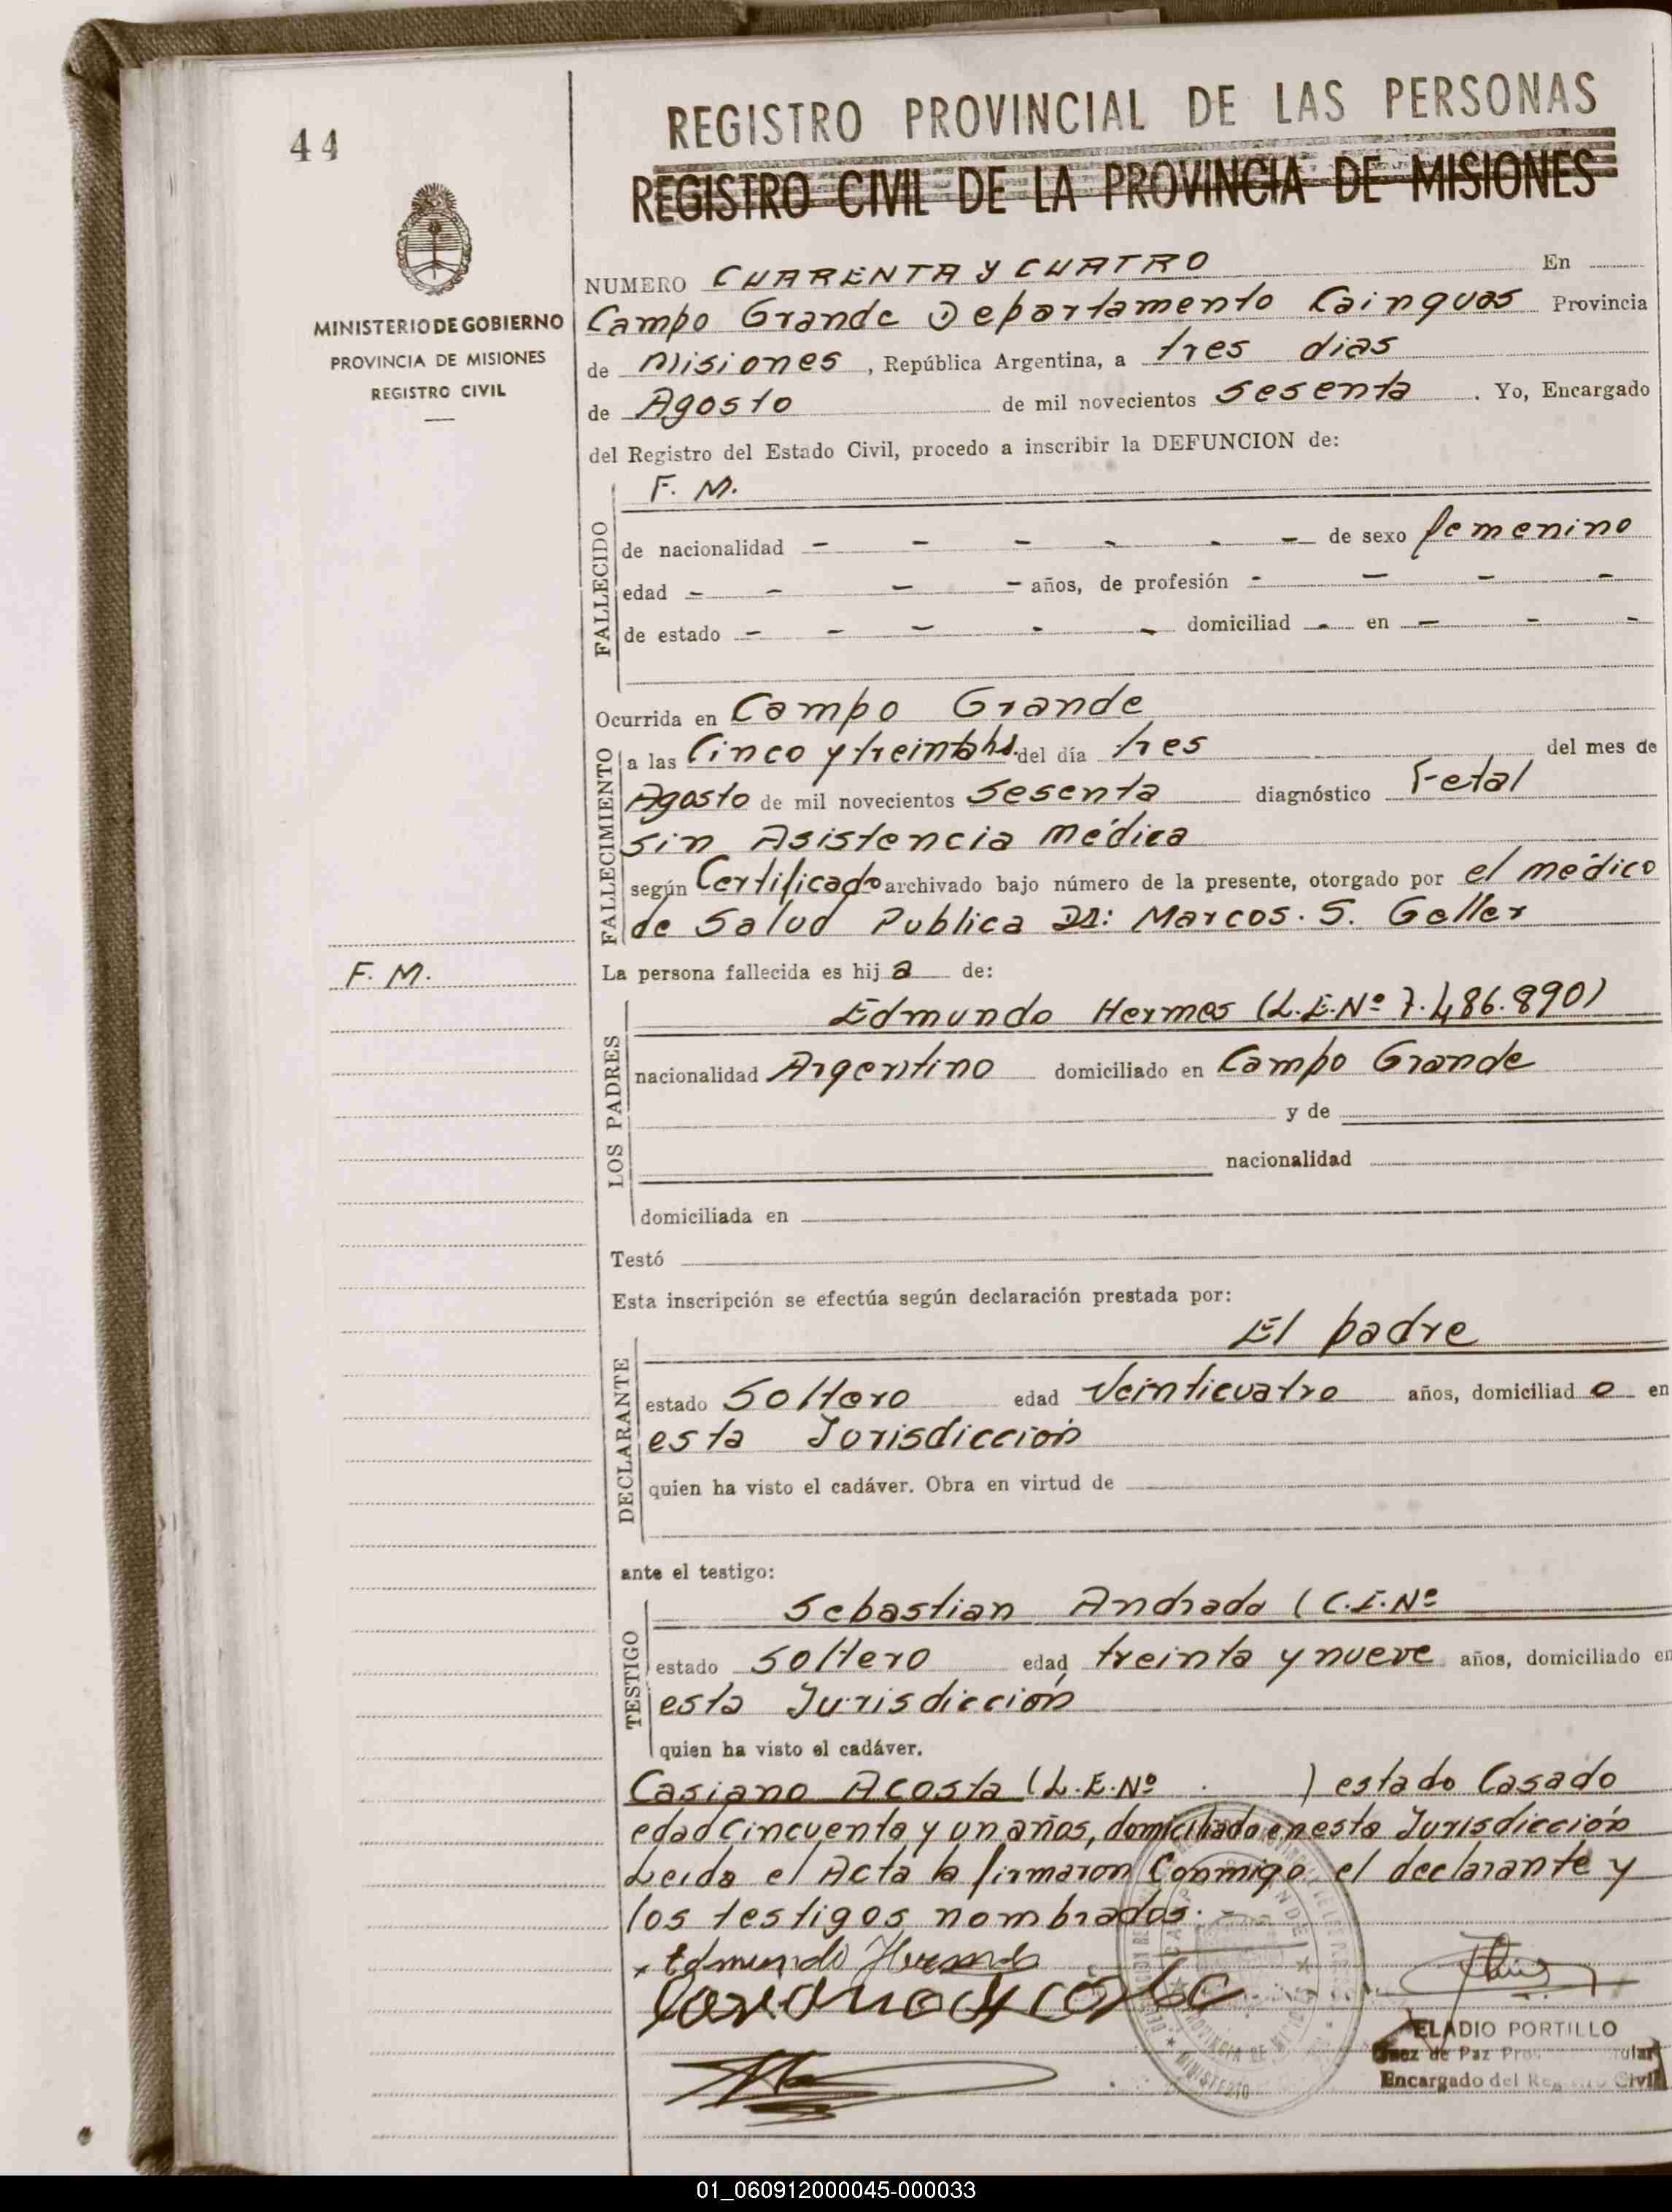 44
REGISTRO PROVINCIAL DE LAS PERSONAS
REGISTRO CIVIL DE LA PROVINCIA DE MISIONES
MINISTERIO DE GOBIERNO
PROVINCIA DE MISIONES
REGISTRO CIVIL
NUMERO CUARENTA Y CUATRO En
Campo Grande Departamento Cainguas Provincia
de Misiones, República Argentina, a tres dias
de Agosto de mil novecientos sesenta. Yo, Encargado
del Registro del Estado Civil, procedo a inscribir la DEFUNCION de:
F. M.
FALLECIDO
de nacionalidad - - - - - - de sexo femenino
edad - - - - años, de profesión - - - -
de estado - - - - - domiciliad - en - - -
Ocurrida en Campo Grande
FALLECIMIENTO
a las Cinco y treinta hs. del día tres del mes de
Agosto de mil novecientos Sesenta diagnóstico Fetal
sin Asistencia médica
según Certificado archivado bajo número de la presente, otorgado por el médico
de Salud Publica Dr: Marcos. S. Geller
F. M.
La persona fallecida es hija de:
LOS PADRES
Edmundo Hermes (L.E.Nº 7.486.890)
nacionalidad Argentino domiciliado en Campo Grande
y de
nacionalidad
domiciliada en
Testó
Esta inscripción se efectúa según declaración prestada por:
DECLARANTE
El padre
estado Soltero edad Veinticuatro años, domiciliado en
esta Jurisdicción
quien ha visto el cadáver. Obra en virtud de
ante el testigo:
TESTIGO
Sebastian Andrada (C.I.Nº
estado soltero edad treinta y nueve años, domiciliado en
esta Jurisdicción
quien ha visto el cadáver.
Casiano Acosta (L.E.Nº . ) estado Casado
edad Cincuenta y un años, domiciliado en esta Jurisdicción
Leida el Acta la firmaron Conmigo el declarante y
los testigos nombrados. -
x Edmundo Hermes
Casiano Acosta
ELADIO PORTILLO
Juez de Paz
Encargado del Registro Civil
01_060912000045-000033